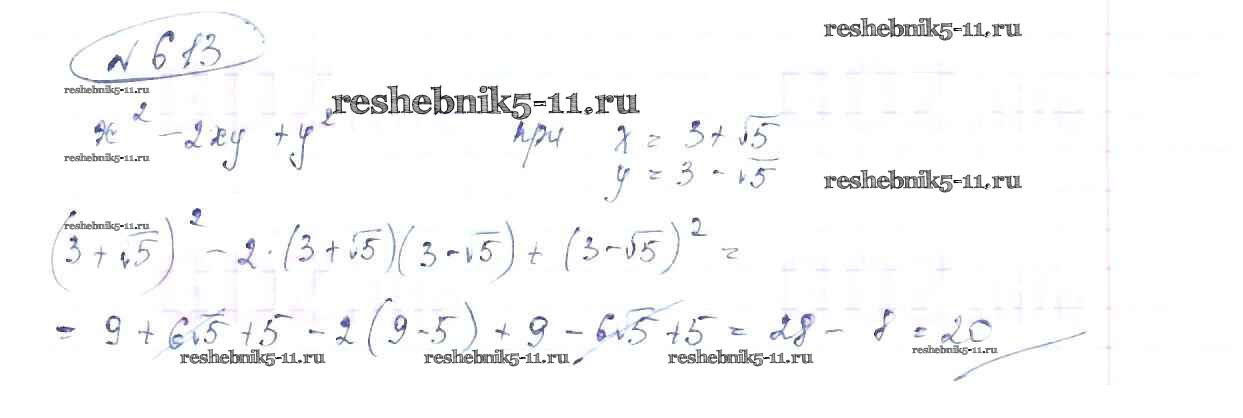 reshebnik5-11.ru
№ 613
reshebnik5-11.ru
reshebnik5-11.ru
x² - 2xy + y² при x = 3 + √5
reshebnik5-11.ru
y = 3 - √5
reshebnik5-11.ru
reshebnik5-11.ru
(3 + √5)² - 2 · (3 + √5)(3 - √5) + (3 - √5)² =
= 9 + 6√5 + 5 - 2(9 - 5) + 9 - 6√5 + 5 = 28 - 8 = 20
reshebnik5-11.ru reshebnik5-11.ru reshebnik5-11.ru reshebnik5-11.ru